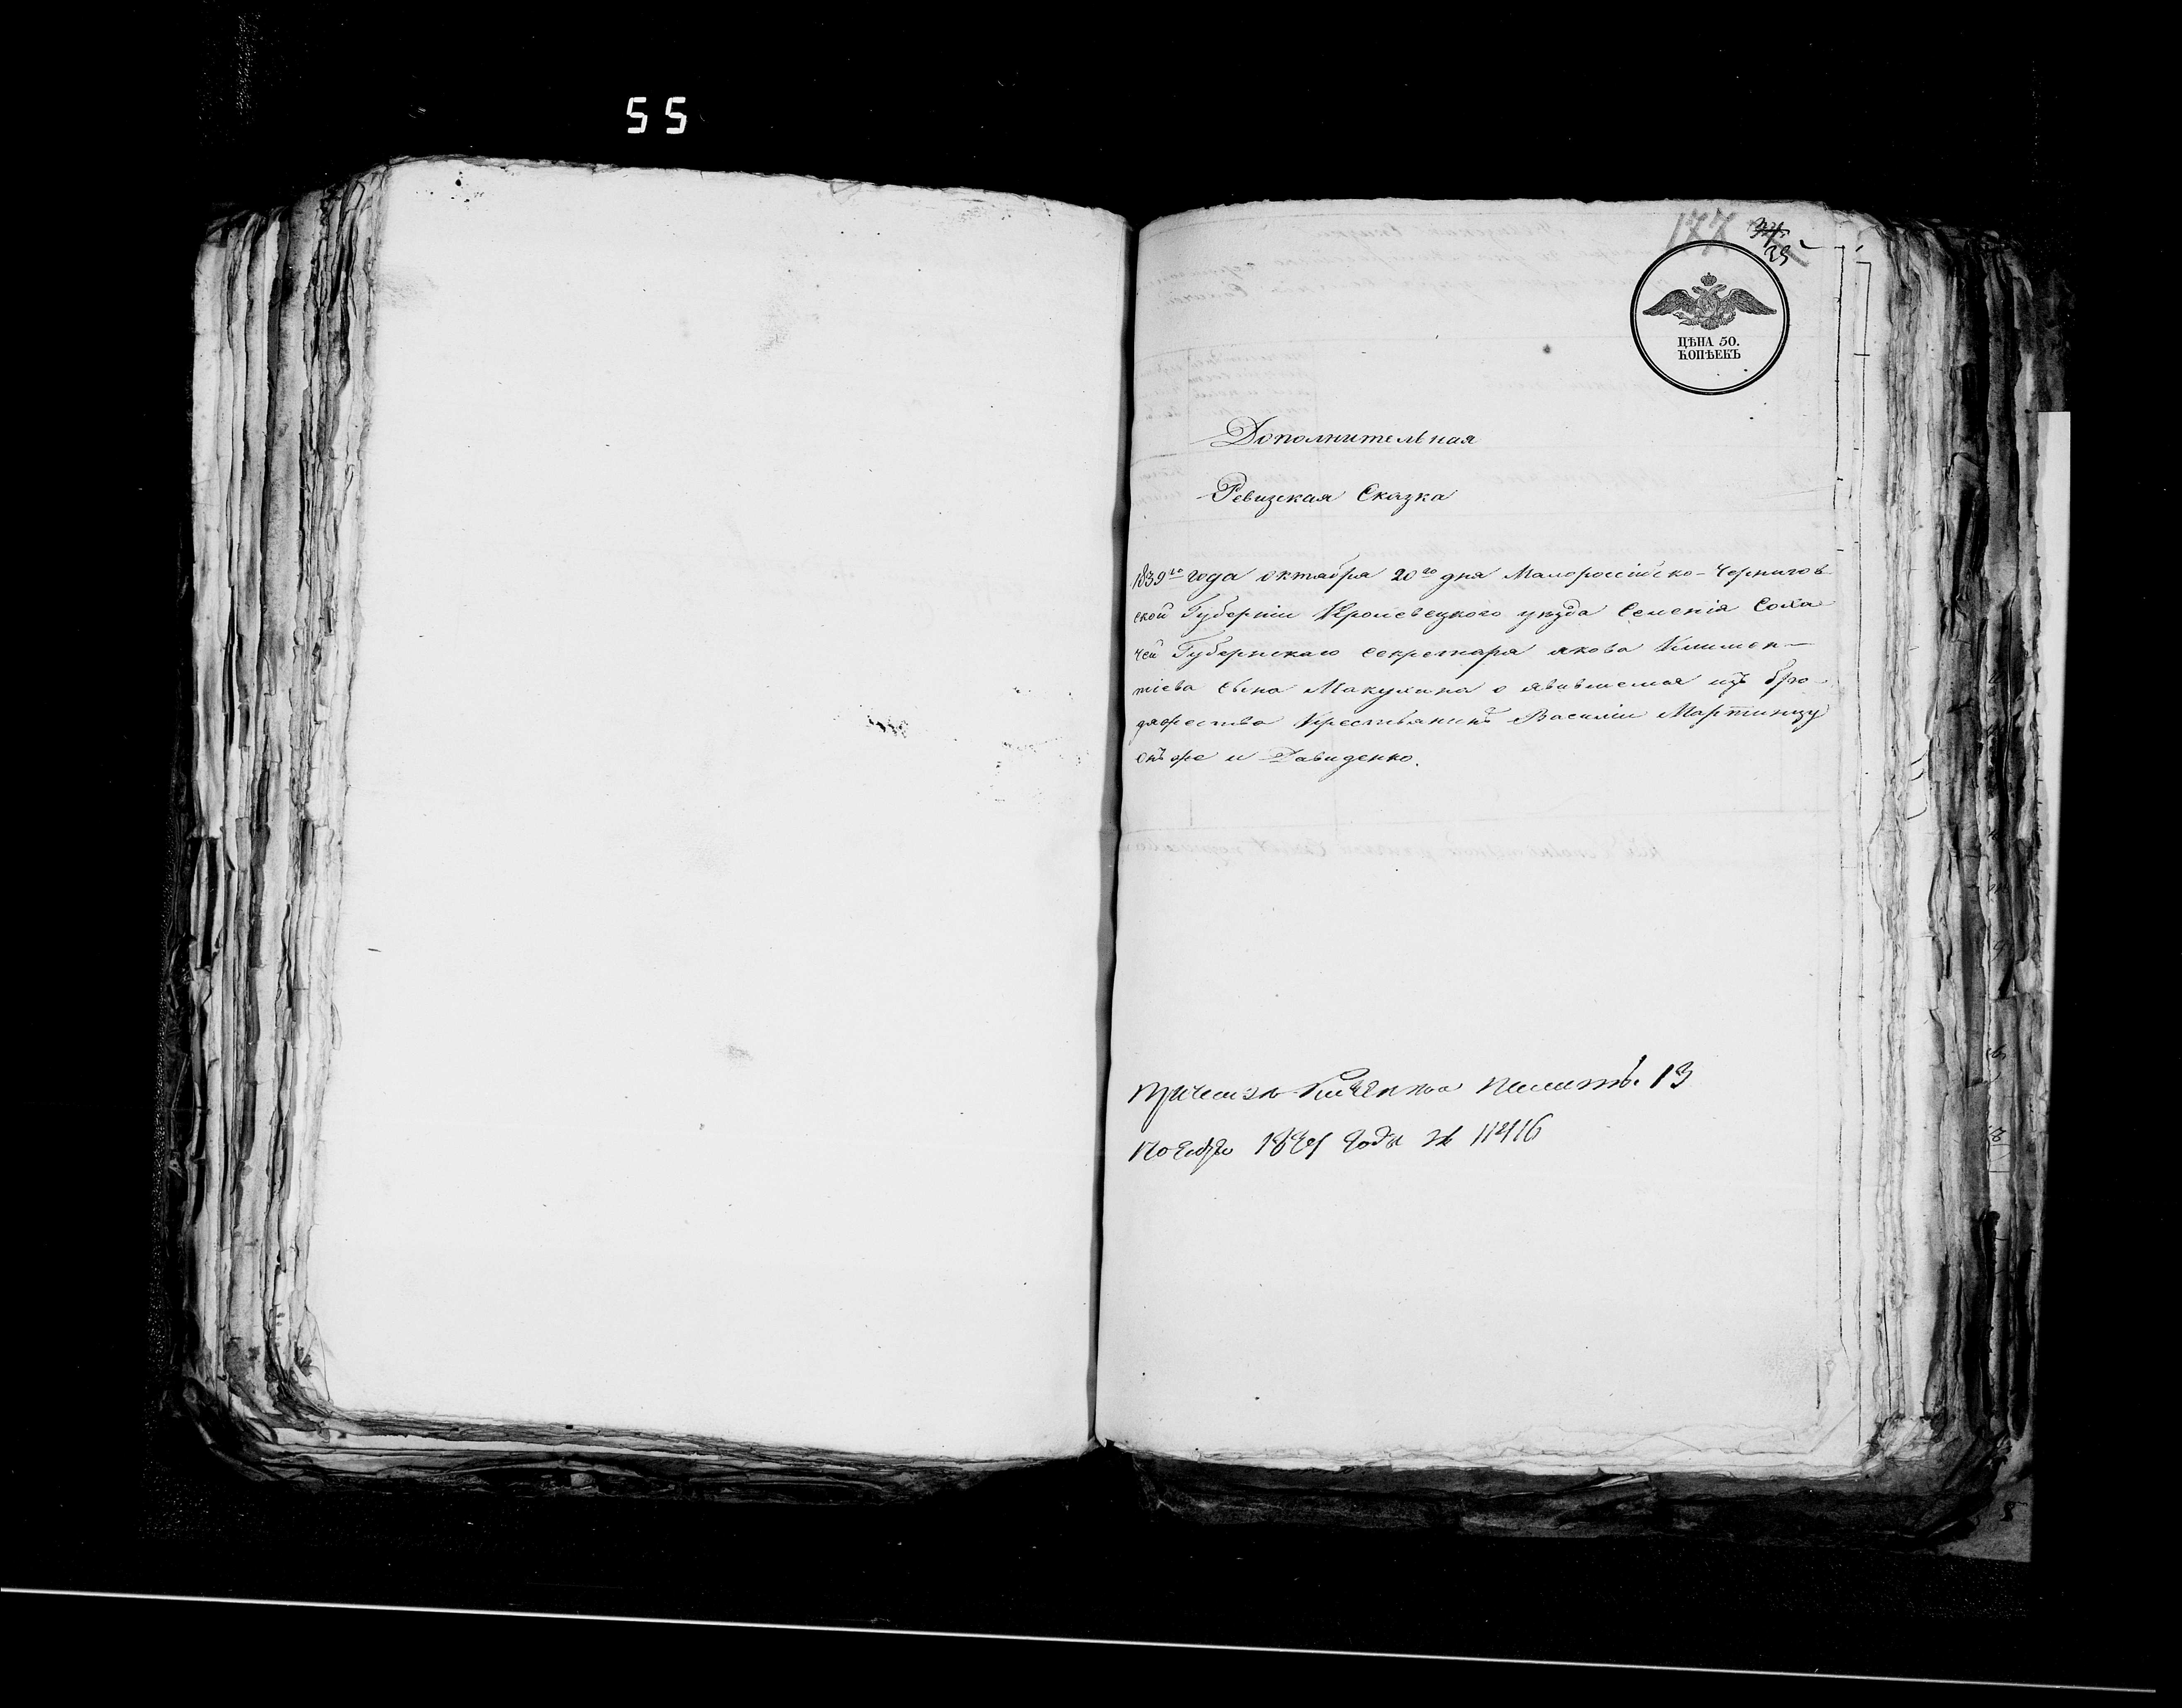 55
177 34.
25
ЦѢНА 50.
КОПѢЕКЪ
Дополнительная
Ревизская Сказка
1839го года октября 20го дня Малороссійско-Чернигов
ской Губерніи Кролевецкого уезда Селенія Соха
чей Губернскаго секретаря якова Климен-
тіева сына Макухина о явившемся изъ бро-
дяжества Крестьянинѣ Василіи Мартинцу
онъ же и Давиденко.
13
Ноября года №